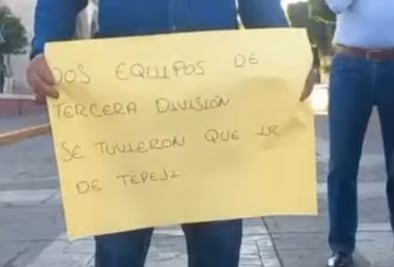 DOS EQUIPOS DE
TERCERA DIVISIÓN
SE TUVIERON QUE IR
DE TEPEJI